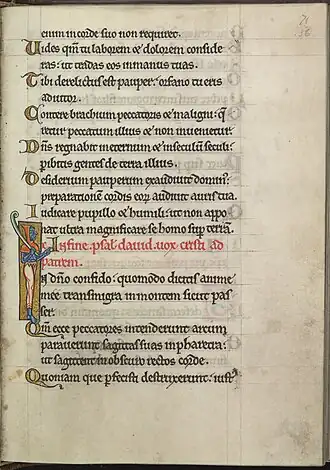 enim in corde suo non requiret.
Uides qm tu laborem et dolorem conside
ras: ut tradas eos in manus tuas.
Tibi derelictus est pauper: orfano tu eris
adiutor.
Contere brachium peccatoris et maligni: q̄
retur peccatum illius et non inuenietur.
Dns regnabit in eternum et in seculū seculi:
pibitis gentes de terra illius.
Desiderium pauperum exaudiuit dominꝰ:
preparationem cordis eorū audiuit auris tua.
Iudicare pupillo et humili: ut non appo
nat ultra magnificare se homo sup terrā.
In fine. psal. dauid. uox cristi ad
patrem.
In dño confido: quomodo dicitis anime
meę transmigra in montem sicut pas
ser.
Qm ecce peccatores intenderunt arcum
parauerunt sagittas suas in pharetra:
ut sagittent in obscuro rectos corde.
Quoniam que pfecisti destruxerunt: iustꝰ